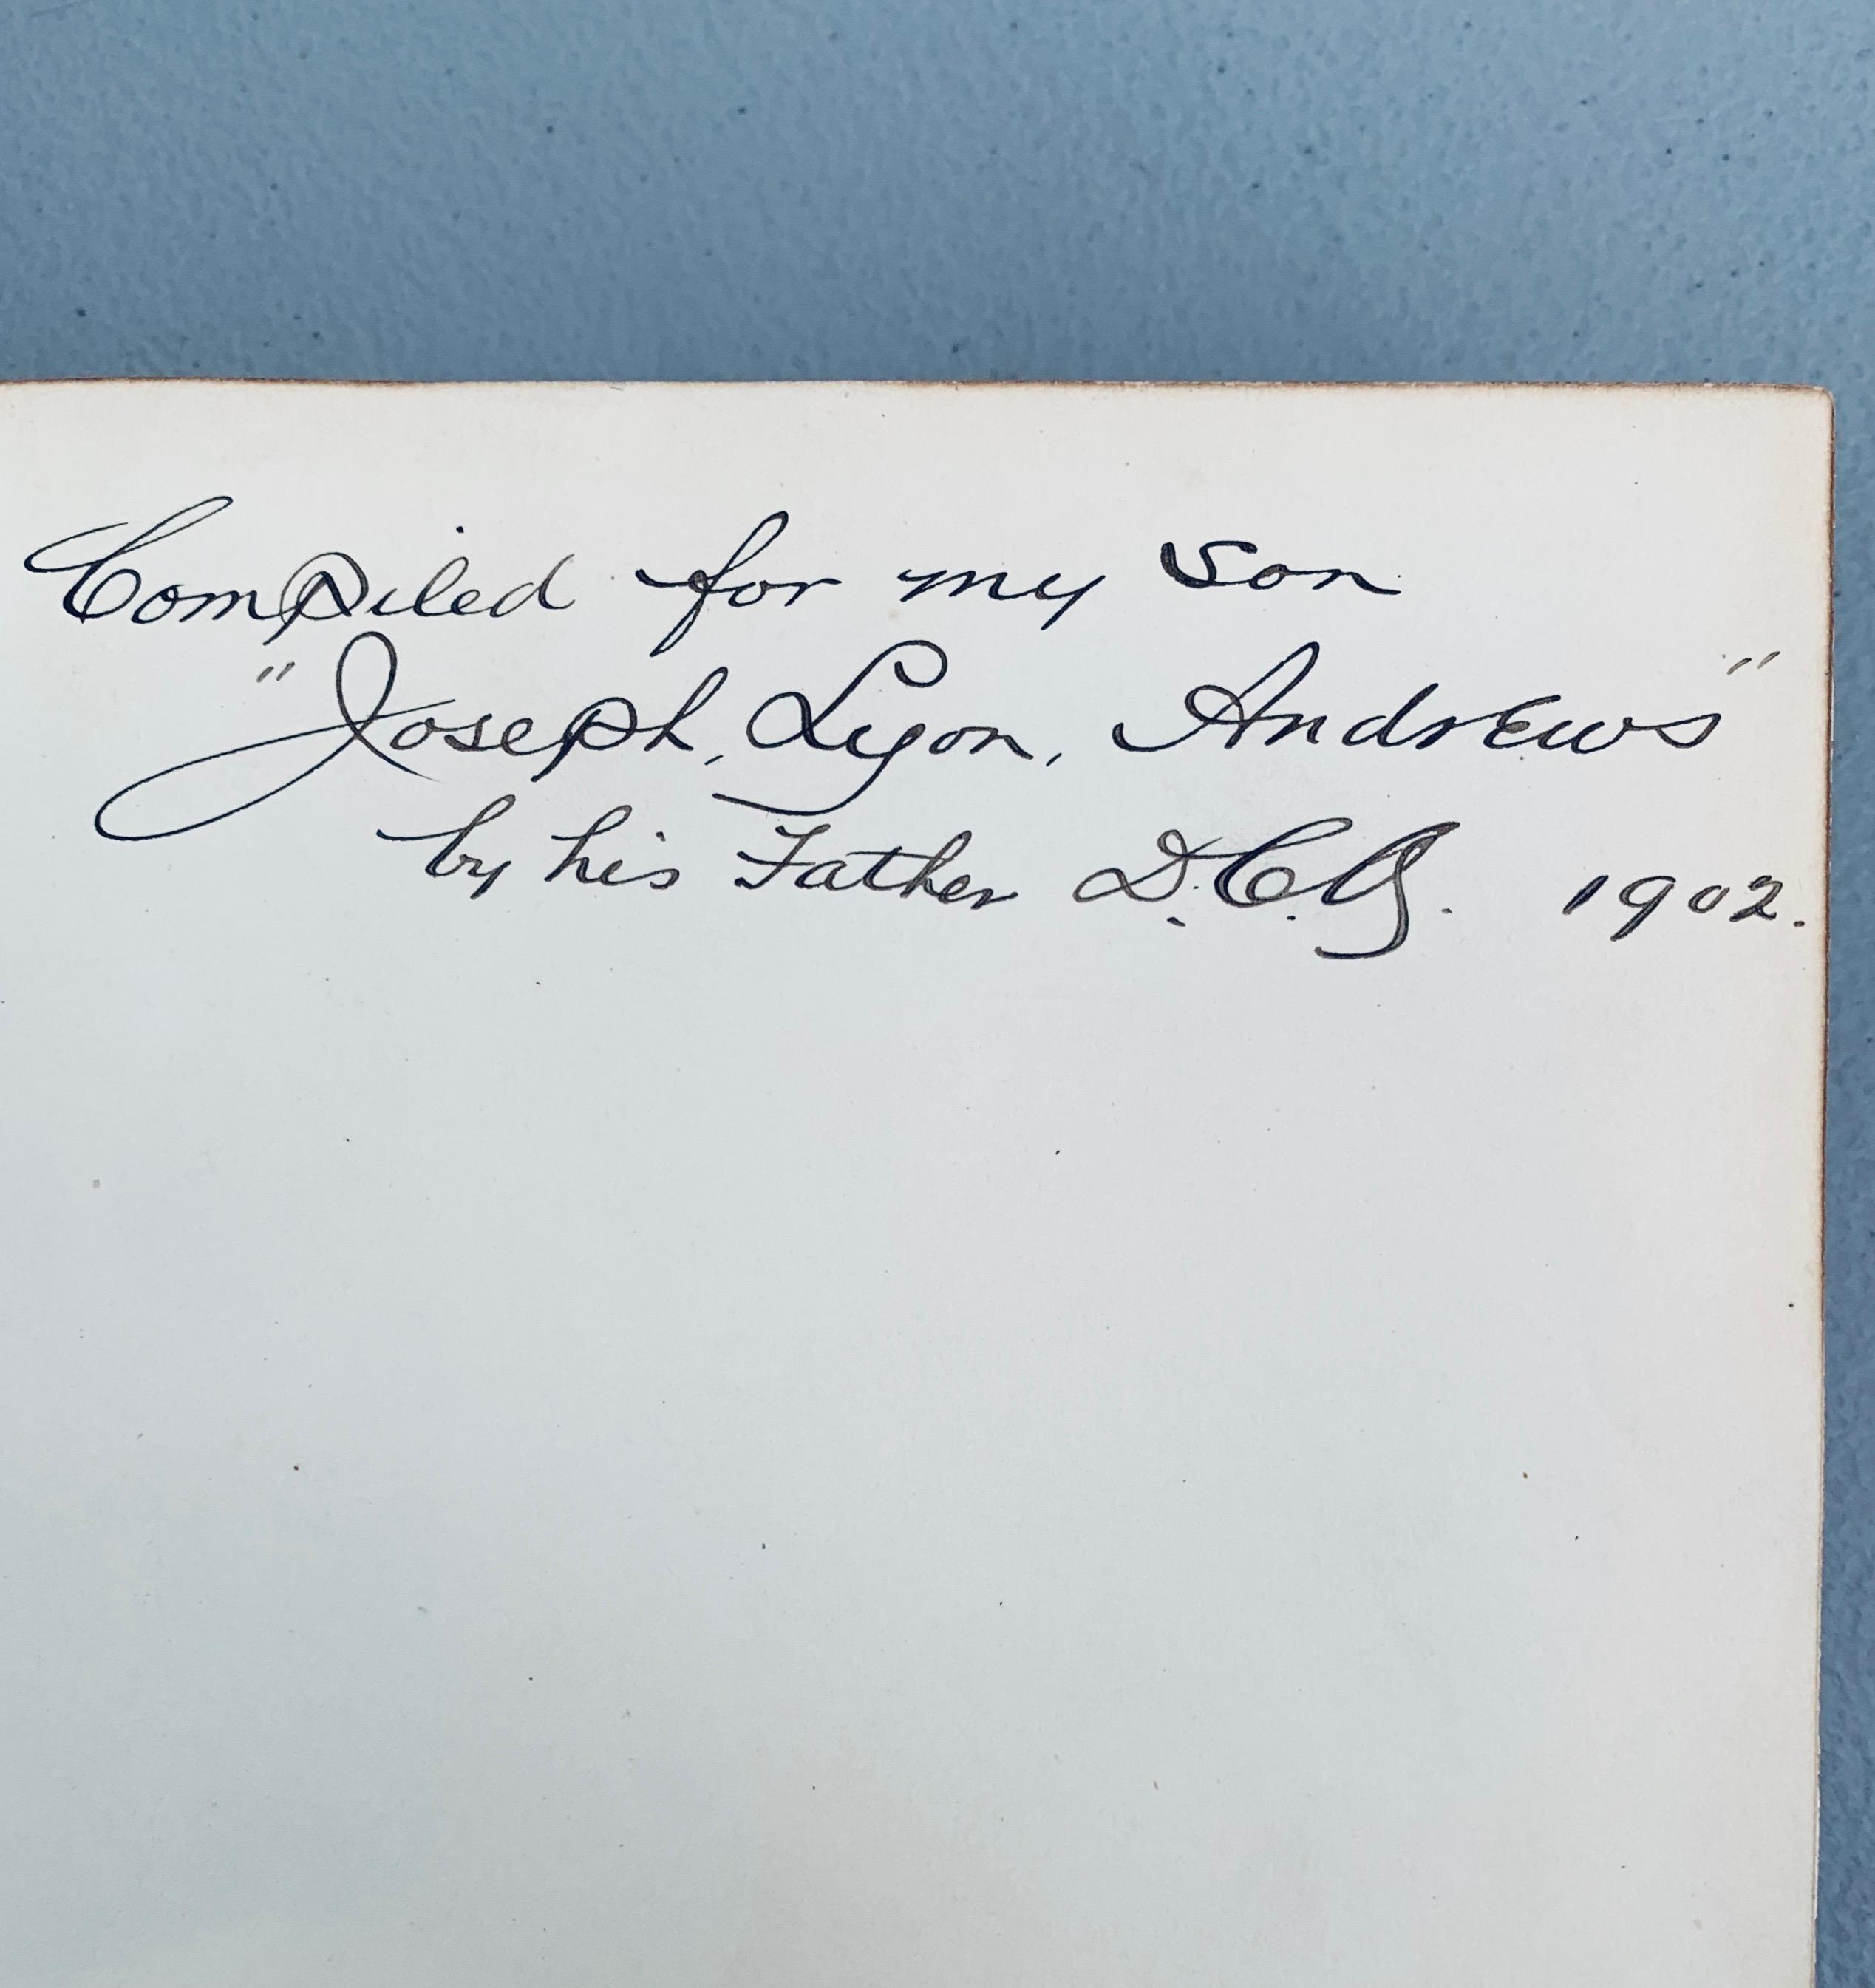 Compiled for my son
"Joseph, Lyon, Andrews"
by his Father D.C.A. 1902.